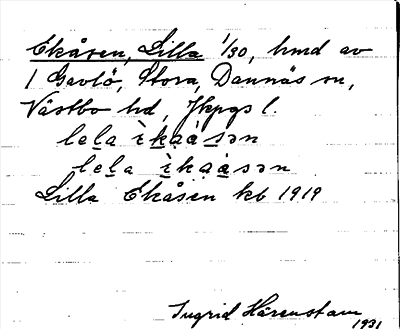 Ekåsen, Lilla 1/30, hmd av
1 Gavlö, Stora, Dannäs sn,
Västbo hd, Jkpgs l.
lela ìkaàsən
lela ìkaàsən
Lilla Ekåsen kb 1919
Ingrid Härenstam
1931